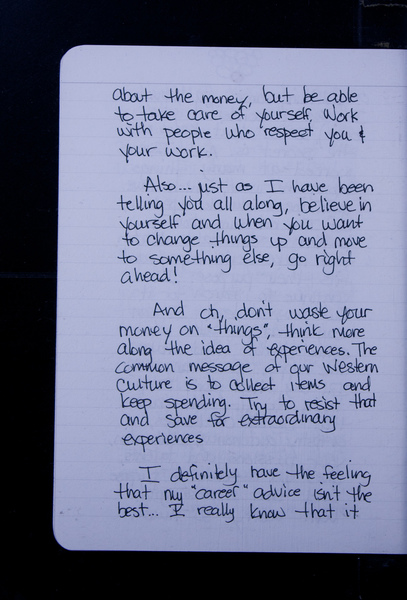 about the money, but be able
to take care of yourself. Work
with people who respect you &
your work.
Also... just as I have been
telling you all along, believe in
yourself and when you want
to change things up and move
to something else, go right
ahead!
And oh, don't waste your
money on "things", think more
along the idea of experiences. The
common message of our Western
Culture is to collect items and
keep spending. Try to resist that
and save for extraordinary
experiences
I definitely have the feeling
that my "career" advice isn't the
best... I really know that it